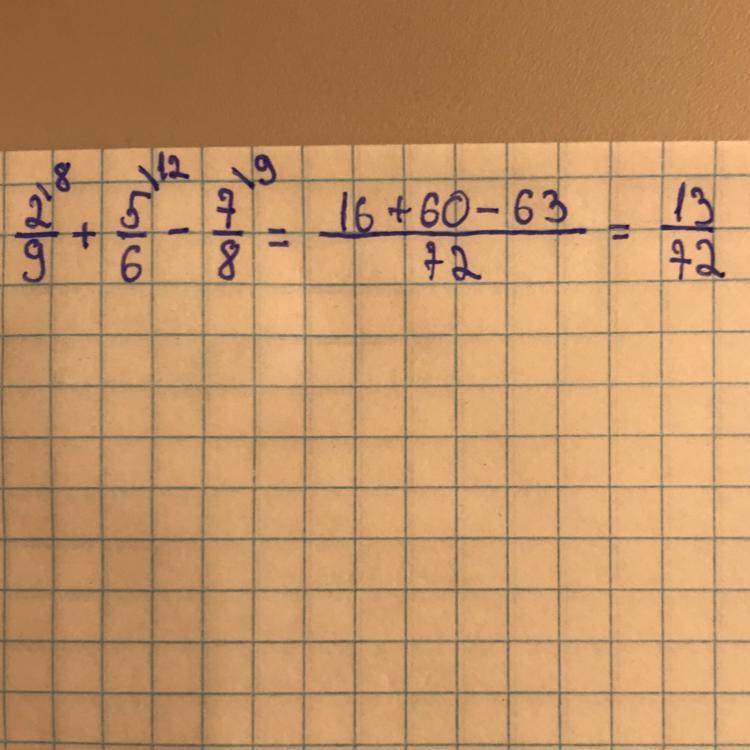 2/9\8 + 5/6\12 - 7/8\9 = (16 + 60 - 63)/72 = 13/72